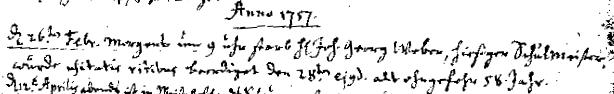 Anno 1757.
d 26ten Febr. Morgens um 9 uhr starb H Joh Georg Weber, hiesiger Schulmeister
wurde citatis ritibus beerdiget den 28ten ejsd. alt ohngefehr 58 Jahr.
d 12t Aprilis abends ist in